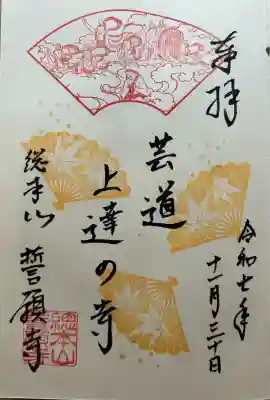 奉拝
芸道
上達の寺
総本山 誓願寺
令和七年
十一月三十日